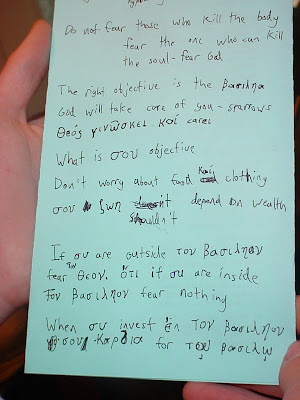 Do not fear those who kill the body
fear the one who can kill
the soul - fear God
The right objective is the βασιληα
God will take care of you - sparrows
Θεός γινώσκει καί cares
What is σου objective
Don't worry about food καί clothing
σου ζωη shouldn't depend on wealth
If συ are outside τον βασιληον
fear τον θεον. ὅτι if συ are inside
τον βασιληον fear nothing
When συ invest ἐν τον βασιληον
σου καρδια for τοῦ βασιλω